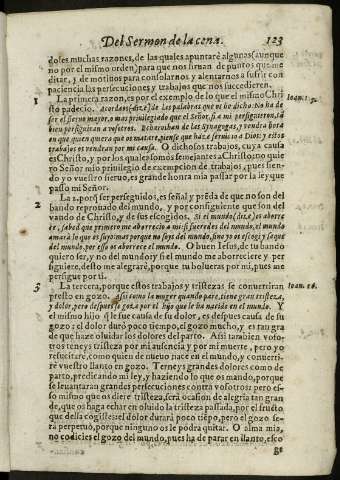 Del Sermon de la cena. 123
doles muchas razones, de las quales apuntaré algunas (aunque
no por el mismo orden) para que nos siruan de puntos que me
ditar, y de motiuos para consolarnos y alentarnos a sufrir con
paciencia las persecuciones y trabajos que nos succedieren.
1 La primera razon, es por el exemplo de lo que el mismo Chri Ioan. 15.
sto padecio. Acordaos (dize) de las palabras que os he dicho: No ha de
ser el sieruo mayor, o mas priuilegiado que el Señor, si a mi persiguieron, tã
bien persiguiran a vosotros. Echaroshan de las Synagogas, y vendra hora
en que quien quiera que os matare, piense que haze seruicio a Dios: y estos
trabajos os vendran por mi causa. O dichosos trabajos, cuya causa
es Christo, y por los quales somos semejantes a Christo: no quie
ro Señor mio priuilegio de exempcion de trabajos, pues sien-
do yo vuestro sieruo, es grande honra mia passar por la ley que
passo mi Señor.
2 La 2. porq̃ ser perseguidos, es señal y prẽda de que no son del
bando reprouado del mundo, y por consiguiente que son del
vando de Christo, y de sus escogidos. Si el mundo (dize) os aborre
ce, sabed que primero me aborrecio a mi: si fuerades del mundo, el mundo
amara lo que es suyo: mas porque no soys del mundo, sino yo os escogi y saque
del mundo, por esso os aborrece el mundo. O buen Iesus, de tu bando
quiero ser, y no del mundo: y si el mundo me aborreciere y per
siguiere, desto me alegraré, porque tu bolueras por mi, pues me
persigue por ti.
3 La tercera, porque estos trabajos y tristezas se conuertiran Ioan. 16.
presto en gozo. Assi como la muger quando pare, tiene gran tristeza,
y dolor, pero despues se goza por el hijo que le ha nacido en el mundo. Y
el mismo hijo q̃ le fue causa de su dolor, es despues causa de su
gozo: el dolor duró poco tiempo, el gozo mucho, y es tan gra
de que haze oluidar los dolores del parto. Assi tambien voso-
tros teneys tristeza por mi ausencia y por mi muerte, pero yo
resucitaré, como quien de nueuo nace en el mundo, y conuerti-
ré vuestro llanto en gozo. Terneys grandes dolores como de
parto, predicando mi ley, y haziendo lo que os mando, porque
se leuantaran grandes persecuciones contra vosotros: pero es-
so mismo que os diere tristeza, será ocasion de alegria tan gran
de, que os haga echar en oluido la tristeza passada, por el fructo
que della cogistes: el dolor durará poco tiempo, pero el gozo se-
ra perpetuo, porque ninguno os le podra quitar. O alma mia,
no codicies el gozo del mundo, pues ha de parar en llanto, esco
ge